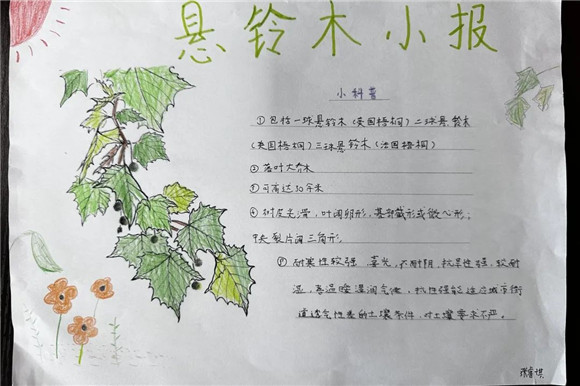 悬铃木小报
小科普
①包括一球悬铃木(美国梧桐)二球悬铃木
(英国梧桐)三球悬铃木(法国梧桐)
②落叶大乔木
③可高达30多米
④树皮光滑,叶阔卵形,基部截形或微心形,
中央裂片阔三角形
⑤耐寒性较强 喜光,不耐阴,抗旱性强,较耐
湿,喜温暖湿润气候,抗性强能适应城市街
道透气性差的土壤条件,对土壤要求不严。